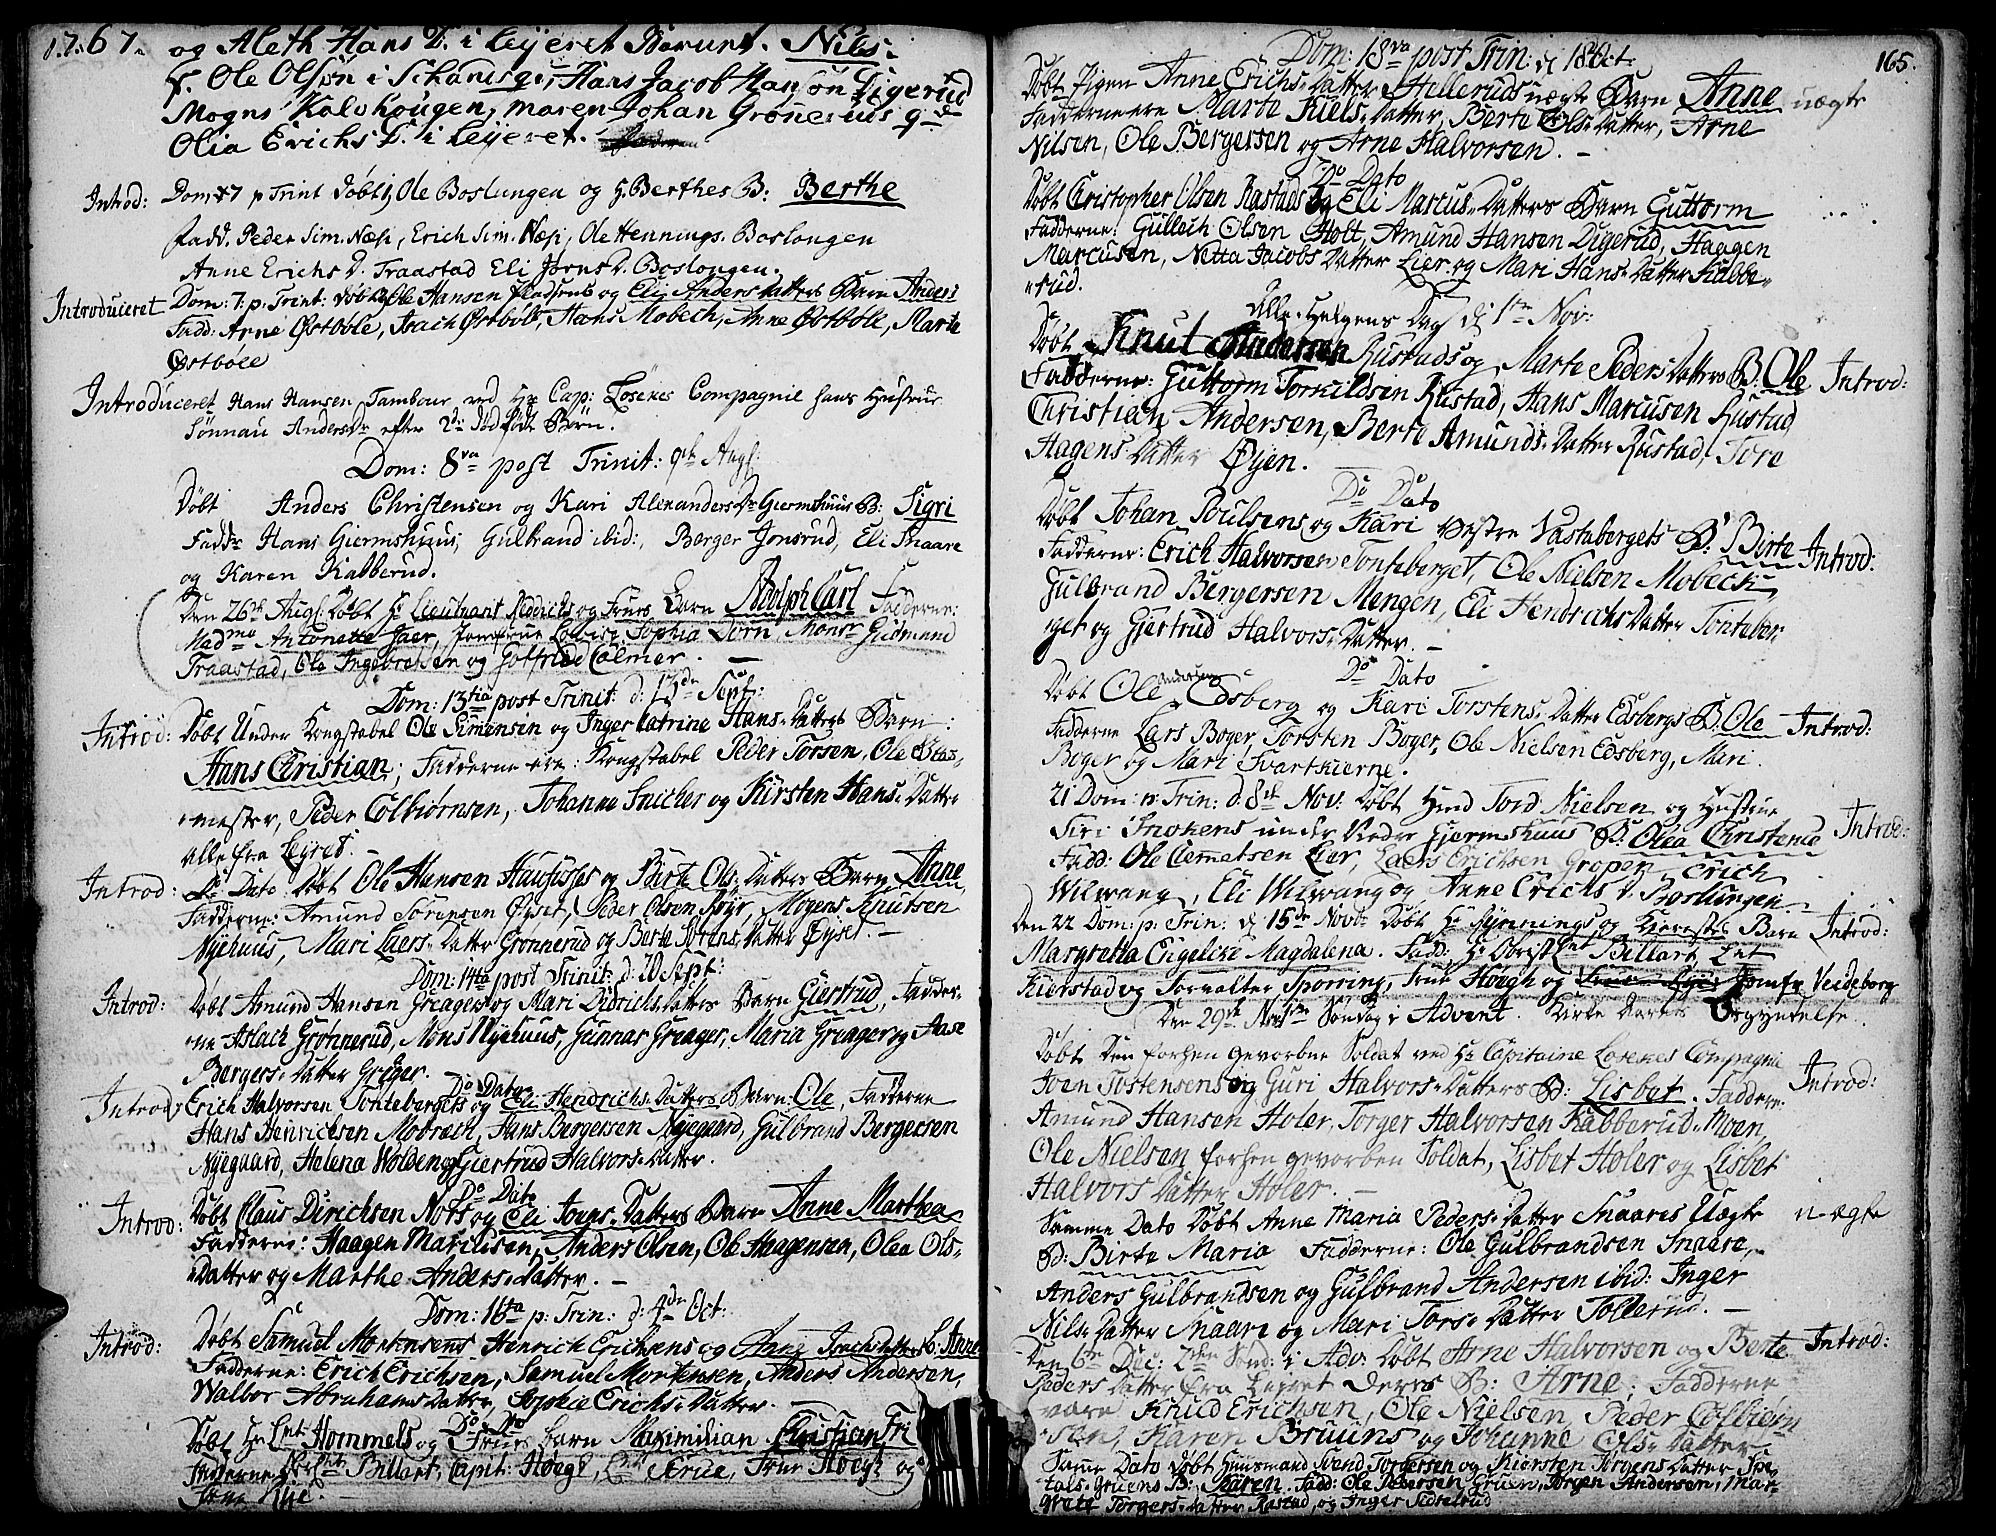 1767.
og Aleth Hans D. i Leyeret Barnet. Niels.
F. Ole Olsøn i Schandsge, Hans Jacob Hansøn Digerud
Mogns Kalvhougen, Maren Johan Grønerüds
Olia Erichs D. i Leyeret.
Introd: Dom 7 p Trint Døbt Ole Boslungen og H. Berthes B: Berthe
Fadd. Peder Sim. Næss, Erich Sim. Næss, Ole Hennings. Boslongen
Anne Erichs D. Traastad Eli Jørns D. Boslongen.
Introduceret Dom: 7. p: Trint: Døbt Ole Hansen Pladsens og Eli Anders datters Barn Anders
Fadd: Arne Østbøle, Isach Østbøle, Hans Mobech, Anne Østbøle, Marte
Østbøle
Introduceret Hans Hansen Tambour ved Hr Cap: Løsenes Compagnie hans Hustrue
Sønnau Andersdr efter 2de dødfødte Børn.
Dom: 8va post Trinit: 9de Aug:
Døbt Anders Christensen og Kari Alexanders Dr Giermshuus B: Sigri
Faddr Hans Giermshuus, Gulbrand ibid:, Berger Jonsrud, Eli Snaare
og Karen Kabberud.
Den 26de Aug: Døbt Hr Lieutenant Redichs og Frues Barn Adolph Carl Fadderne:
Madme Antonette Jaer, Jomfrue Lovise Sophia Dorn, Monsr Gudmund
Traastad, Ole Ingebretsen og Gotfried Colmer.
Dom: 13tia post Trinit: d: 13de Sept:
Introd: Døbt Under Kongstabel Ole Simensen og Inger Catrine Hans-Datters Barn:
Hans Christian; Fadderne ere: Kongstabel Peder Torsen, Ole Blas-
mester, Peder Colbiørnsen, Johanne Snicker og Kirsten Hans-Datter
Alle fra Leyret.
Introd: Do Dato Døbt Ole Hansen Haufisses og Birte Ols-Datters Barn Anne
Fadderne: Amund Sørensen Øyset, Peder Olsen Myr, Mogens Knutsen
Nyehuus, Mari Laers-Datter Grønnerud og Berte Sørens-Datter Øyset.
Dom: 14ta post Trinit: d: 20 Sept:
Introd: Døbt Amund Hansen Greager og Mari Didrichs datters Barn Giertrud, Fadder-
ne Aslach Grønnerud, Mons Nyehuus, Gunnar Greager, Maria Greager og Aase
Bergers-Datter Greger.
Do Dato
Introd: Erich Halvorsen Tontebergets og Eli Hendrichs-Datters Barn: Ole, Fadderne
Hans Henrichsen Mobræch, Hans Bergersen Nyegaard, Gulbrand Bergersen
Nyegaard, Helena Wolden og Giertrud Halvors-Datter.
Do Dato
Introd: Døbt Claus Dirichsen Nors og Eli Joens-Datters Barn Anne Marthea
Fadderne: Haagen Marcusen, Anders Olsen, Ole Haagensen, Olea Ols-
Datter og Marthe Anders-Datter.
Dom: 16ta p: Trin: d: 4de Oct:
Introd: Døbt Samuel Mortensens Henrich Erichsens og Anne Isachs datters B: Anne
Fadderne: Erich Erichsen, Samuel Mortensen, Anders Andersen,
Walbor Abrahams Datter, Sophie Erichs-Datter.
Do Do
Døbt Hr Lnt Hommels og Frues Barn Maximilian Christian Fri
Fadderne Billart, Capit: Høegh, Frue, Frue Høegh og
Frue Rye.
165.
Dom: 18va post Trin: d 18 Oct:
Døbt Pigen Anne Erichs-Datter Helleruds uægte Barn Anne uægte
Fadderne ere Marte Niels-Datter, Berte Ols-Datter, Arne
Nilsen, Ole Bergersen og Arne Halvorsen.
Do Dato
Døbt Christopher Olsen Rastads og Eli Marcus-Datters Barn Guttorm
Fadderne: Gulloch Olsen Holt, Amund Hansen Digerud, Haagen
Marcusen, Netta Jacobs Datter Lier og Mari Hans-Datter Kabbe-
rud.
Alle Helgens Dag d 1ste Nov:
Døbt Knut Andersen Rustads og Marte Peders Datters B: Ole Introd:
Fadderne: Guttorm Torkildsen Rustad, Hans Marcusen Rustad,
Christian Andersen, Berte Amunds-Datter Rustad, Tore
Hagens Datter Øyen.
Do Dato
Døbt Johan Poulsens og Kari Vestre Vastabergets B: Birte Introd:
Fadderne: Erich Halvorsen Tonteberget, Ole Nielsen Mobech
Gulbrand Bergersen Mengen, Eli Hendrichs Datter Tonteber-
get og Gjertrud Halvors-Datter.
Do Dato
Døbt Ole Andersen Edsberg og Kari Torstens-Datter Edsbergs B: Ole Introd:
Fadderne Lars Boger, Torsten Boger, Ole Nielsen Edsberg, Mari
Boger og Mari Svartkierne.
21 Dom: p: Trin: d: 8de Nov: Døbt Hmd Tord Nielsen og Hustrue
Siri Snokens under Nedre Gjermshuus B: Olea Christense Introd:
Fadd: Ole Clemetsen Lier, Laers Erichsen Gropen, Erich
Wilwang, Eli Wilwang og Anne Erichs D. Boslungen.
Den 22 Dom: p: Trin: d 15de Novbr Døbt Hr Rynnings og Kierestes Barn Introd:
Margretta Engelche Magdalena. Fadd: Hr Obristlnt Billart, Lnt
Kierstad og Forvalter Sporring, Frue Høegh og Jomfr Veideborg
Den 29de Nov 1ste Søndag i Advent. Kirke Aarets Begyndelse.
Døbt Den forhen gevorbne Soldat ved Hr Capitaine Losenes Compagnie
Joen Tostensens og Guri Halvors-Datters B: Lisbet. Faddere: Introd:
Amund Hansen Holer, Torger Halvorsen Kabberud-Moen,
Ole Nielsen forhen gevorben Soldat, Lisbet Holer og Lisbet
Halvors Datter Holer.
Samme Dato Døbt Anne Maria Peders-Datter Snaares Uægte uægte
B: Birte Maria Fadderne: Ole Gulbrandsen Snaare,
Anders Gulbrandsen og Gulbrand Andersen ibid: Inger
Nils-Datter Snaare og Mari Tors-Datter Tollerud.
Den 6te Dec: 2den Sønd: i Adv: Døbt Arne Halvorsen og Berte Introd:
Peders Datter fra Leyret deres B: Arne; Fadderne
vare Knud Erichsen, Ole Nielsen, Peder Colbiørn
sen, Karen Bruuns og Johanne Ols-Datter
Samme Dato Døbt Huusmand Svend Torgersen og Kiersten Torgens Datter Spe-
tals-Gruens B: Karen. Fadd: Ole Pedersen Gruen, Jørgen Andersen, Mar-
grete Torgers-Datter Rastad, og Inger Sidselrud